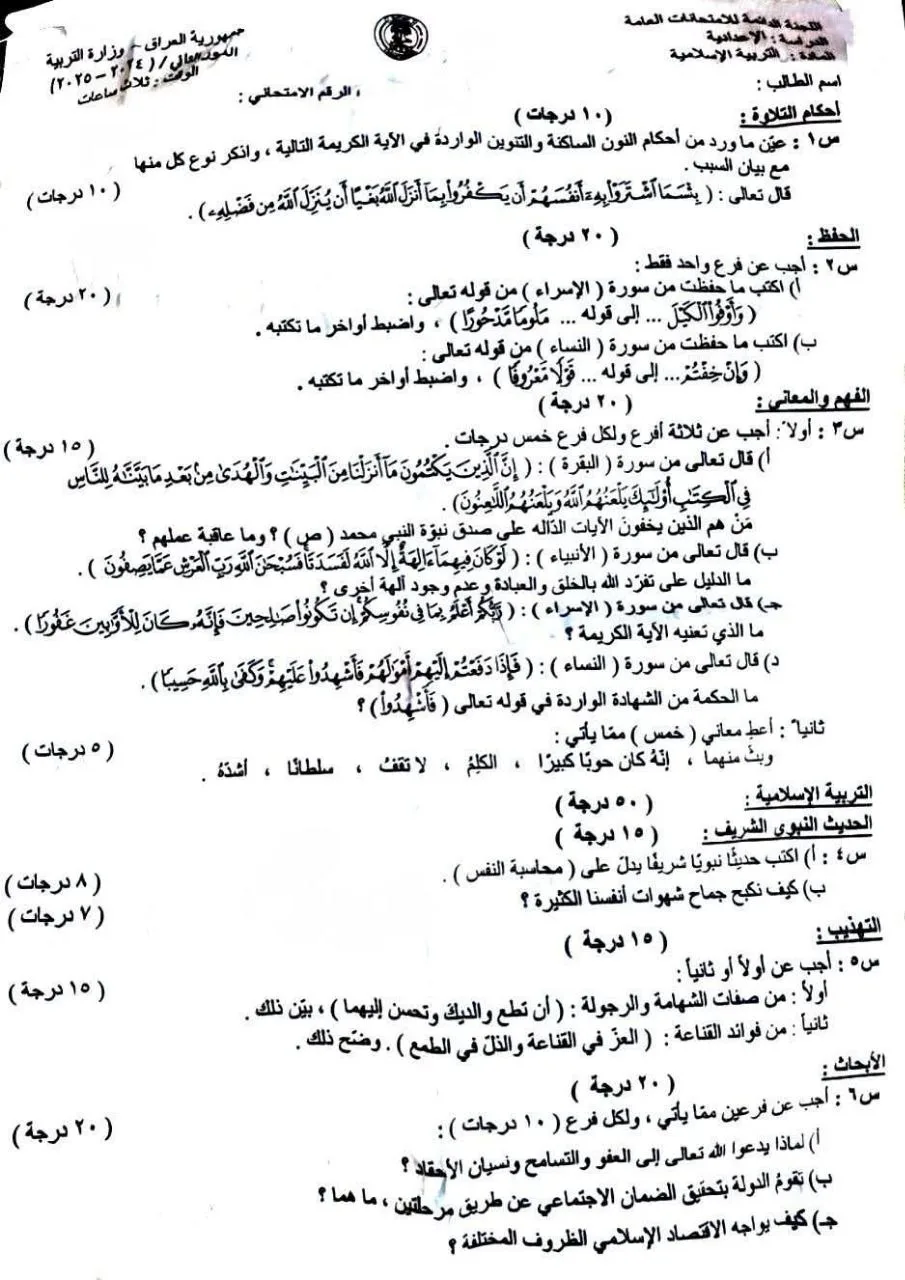 اللجنة الدائمة للامتحانات العامة
الدراسة : الإعدادية
المادة : التربية الإسلامية
جمهورية العراق - وزارة التربية
الدور الثاني / ( ٢٠٢٤ - ٢٠٢٥ )
الوقت : ثلاث ساعات
اسم الطالب :
الرقم الامتحاني :
أحكام التلاوة : ( ١٠ درجات )
س١ : عيّن ما ورد من أحكام النون الساكنة والتنوين الواردة في الآية الكريمة التالية ، واذكر نوع كل منها
مع بيان السبب . ( ١٠ درجات )
قال تعالى : ( بِئْسَمَا اشْتَرَوْا بِهِ أَنفُسَهُمْ أَن يَكْفُرُوا بِمَا أَنزَلَ اللَّهُ بَغْيًا أَن يُنَزِّلَ اللَّهُ مِن فَضْلِهِ ) .
الحفظ : ( ٢٠ درجة )
س٢ : أجب عن فرع واحد فقط : ( ٢٠ درجة )
أ) اكتب ما حفظت من سورة ( الإسراء ) من قوله تعالى :
( وَأَوْفُوا الْكَيْلَ ... إلى قوله ... مَلُومًا مَّدْحُورًا ) ، واضبط أواخر ما تكتبه .
ب) اكتب ما حفظت من سورة ( النساء ) من قوله تعالى :
( وَإِنْ خِفْتُمْ ... إلى قوله ... قَوْلًا مَعْرُوفًا ) ، واضبط أواخر ما تكتبه .
الفهم والمعاني : ( ٢٠ درجة )
س٣ : أولاً : أجب عن ثلاثة أفرع ولكل فرع خمس درجات . ( ١٥ درجة )
أ) قال تعالى من سورة ( البقرة ) : ( إِنَّ الَّذِينَ يَكْتُمُونَ مَا أَنزَلْنَا مِنَ الْبَيِّنَاتِ وَالْهُدَىٰ مِن بَعْدِ مَا بَيَّنَّاهُ لِلنَّاسِ
فِي الْكِتَابِ أُولَٰئِكَ يَلْعَنُهُمُ اللَّهُ وَيَلْعَنُهُمُ اللَّاعِنُونَ ) .
مَنْ هم الذين يخفونَ الآيات الدّاله على صدق نبوّة النبي محمد ( ص ) ؟ وما عاقبة عملهم ؟
ب) قال تعالى من سورة ( الأنبياء ) : ( لَوْ كَانَ فِيهِمَا آلِهَةٌ إِلَّا اللَّهُ لَفَسَدَتَا فَسُبْحَٰنَ اللَّهِ رَبِّ الْعَرْشِ عَمَّا يَصِفُونَ ) .
ما الدليل على تفرّد الله بالخلق والعبادة وعدم وجود آلهة أخرى ؟
جـ) قال تعالى من سورة ( الإسراء ) : ( رَّبُّكُمْ أَعْلَمُ بِمَا فِي نُفُوسِكُمْ إِن تَكُونُوا صَالِحِينَ فَإِنَّهُ كَانَ لِلْأَوَّابِينَ غَفُورًا ) .
ما الذي تعنيه الآية الكريمة ؟
د) قال تعالى من سورة ( النساء ) : ( فَإِذَا دَفَعْتُمْ إِلَيْهِمْ أَمْوَٰلَهُمْ فَأَشْهِدُوا عَلَيْهِمْ وَكَفَىٰ بِاللَّهِ حَسِيبًا ) .
ما الحكمة من الشهادة الواردة في قوله تعالى ( فَأَشْهِدُوا ) ؟
ثانياً : أعطِ معاني ( خمس ) ممّا يأتي : ( ٥ درجات )
وبثّ منهما ، إنّهُ كان حوبًا كبيرًا ، الكَلِمُ ، لا تقفُ ، سلطانًا ، أشدّهُ .
التربية الإسلامية : ( ٥٠ درجة )
الحديث النبوي الشريف : ( ١٥ درجة )
س٤ : أ) اكتب حديثًا نبويًا شريفًا يدلّ على ( محاسبة النفس ) . ( ٨ درجات )
ب) كيف نكبح جماح شهوات أنفسنا الكثيرة ؟ ( ٧ درجات )
التهذيب : ( ١٥ درجة )
س٥ : أجب عن أولاً أو ثانياً : ( ١٥ درجة )
أولاً : من صفات الشهامة والرجولة : ( أن تطع والديك وتحسن إليهما ) ، بيّن ذلك .
ثانياً : من فوائد القناعة : ( العزّ في القناعة والذلّ في الطمع ) . وضّح ذلك .
الأبحاث : ( ٢٠ درجة )
س٦ : أجب عن فرعين ممّا يأتي ، ولكل فرع ( ١٠ درجات ) : ( ٢٠ درجة )
أ) لماذا يدعوا الله تعالى إلى العفو والتسامح ونسيان الأحقاد ؟
ب) تقومُ الدولة بتحقيق الضمان الاجتماعي عن طريق مرحلتين ، ما هما ؟
جـ) كيف يواجه الاقتصاد الإسلامي الظروف المختلفة ؟